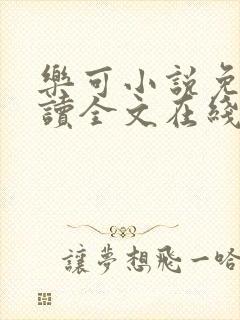 樂可小說免
讀全文在綫
讓夢想飛一哈